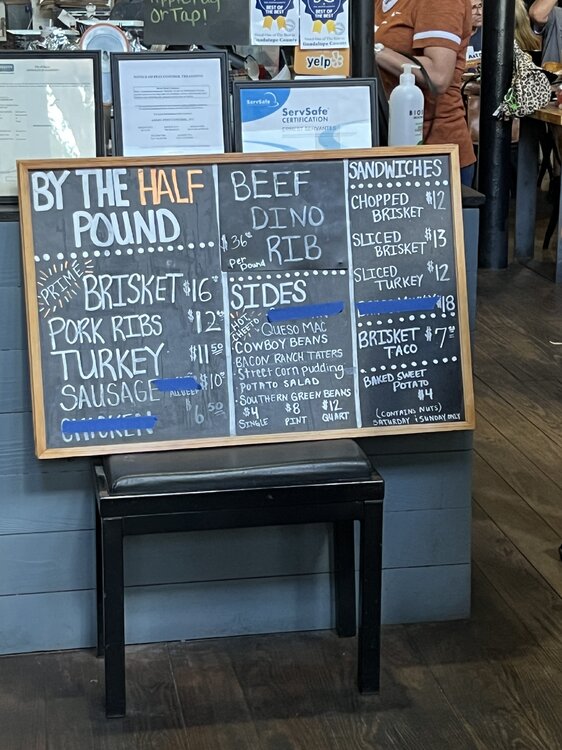 or Tap!
BEST OF
THE BEST
Guadalupe County
BEST OF
THE BEST
Guadalupe County
yelp
NOTICE OF PEST CONTROL TREATMENT
ServSafe
ServSafe
CERTIFICATION
BY THE HALF
POUND
PRIME
BRISKET $16
PORK RIBS $12
TURKEY $11.50
SAUSAGE $10
ALL BEEF
$6.50
CHICKEN
BEEF
DINO
RIB
$36
Per
Pound
SIDES
HOT
CHEETO
QUESO MAC
COWBOY BEANS
BACON RANCH TATERS
Street corn pudding
• POTATO SALAD
• SOUTHERN GREEN BEANS
$4 $8 $12
SINGLE PINT QUART
SANDWICHES
CHOPPED
BRISKET $12
SLICED
BRISKET $13
SLICED
TURKEY $12
$18
BRISKET $7
TACO
BAKED SWEET
POTATO
$4
(CONTAINS NUTS)
SATURDAY & SUNDAY ONLY